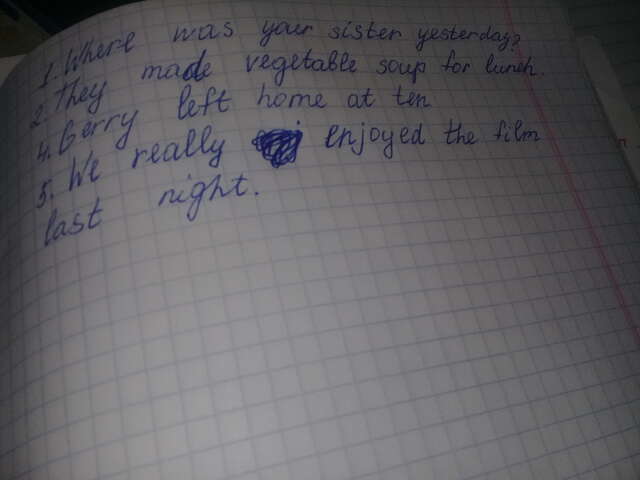 1. Where was your sister yesterday?
2. They made vegetable soup for lunch.
4. Gerry left home at ten
5. We really enjoyed the film
last night.